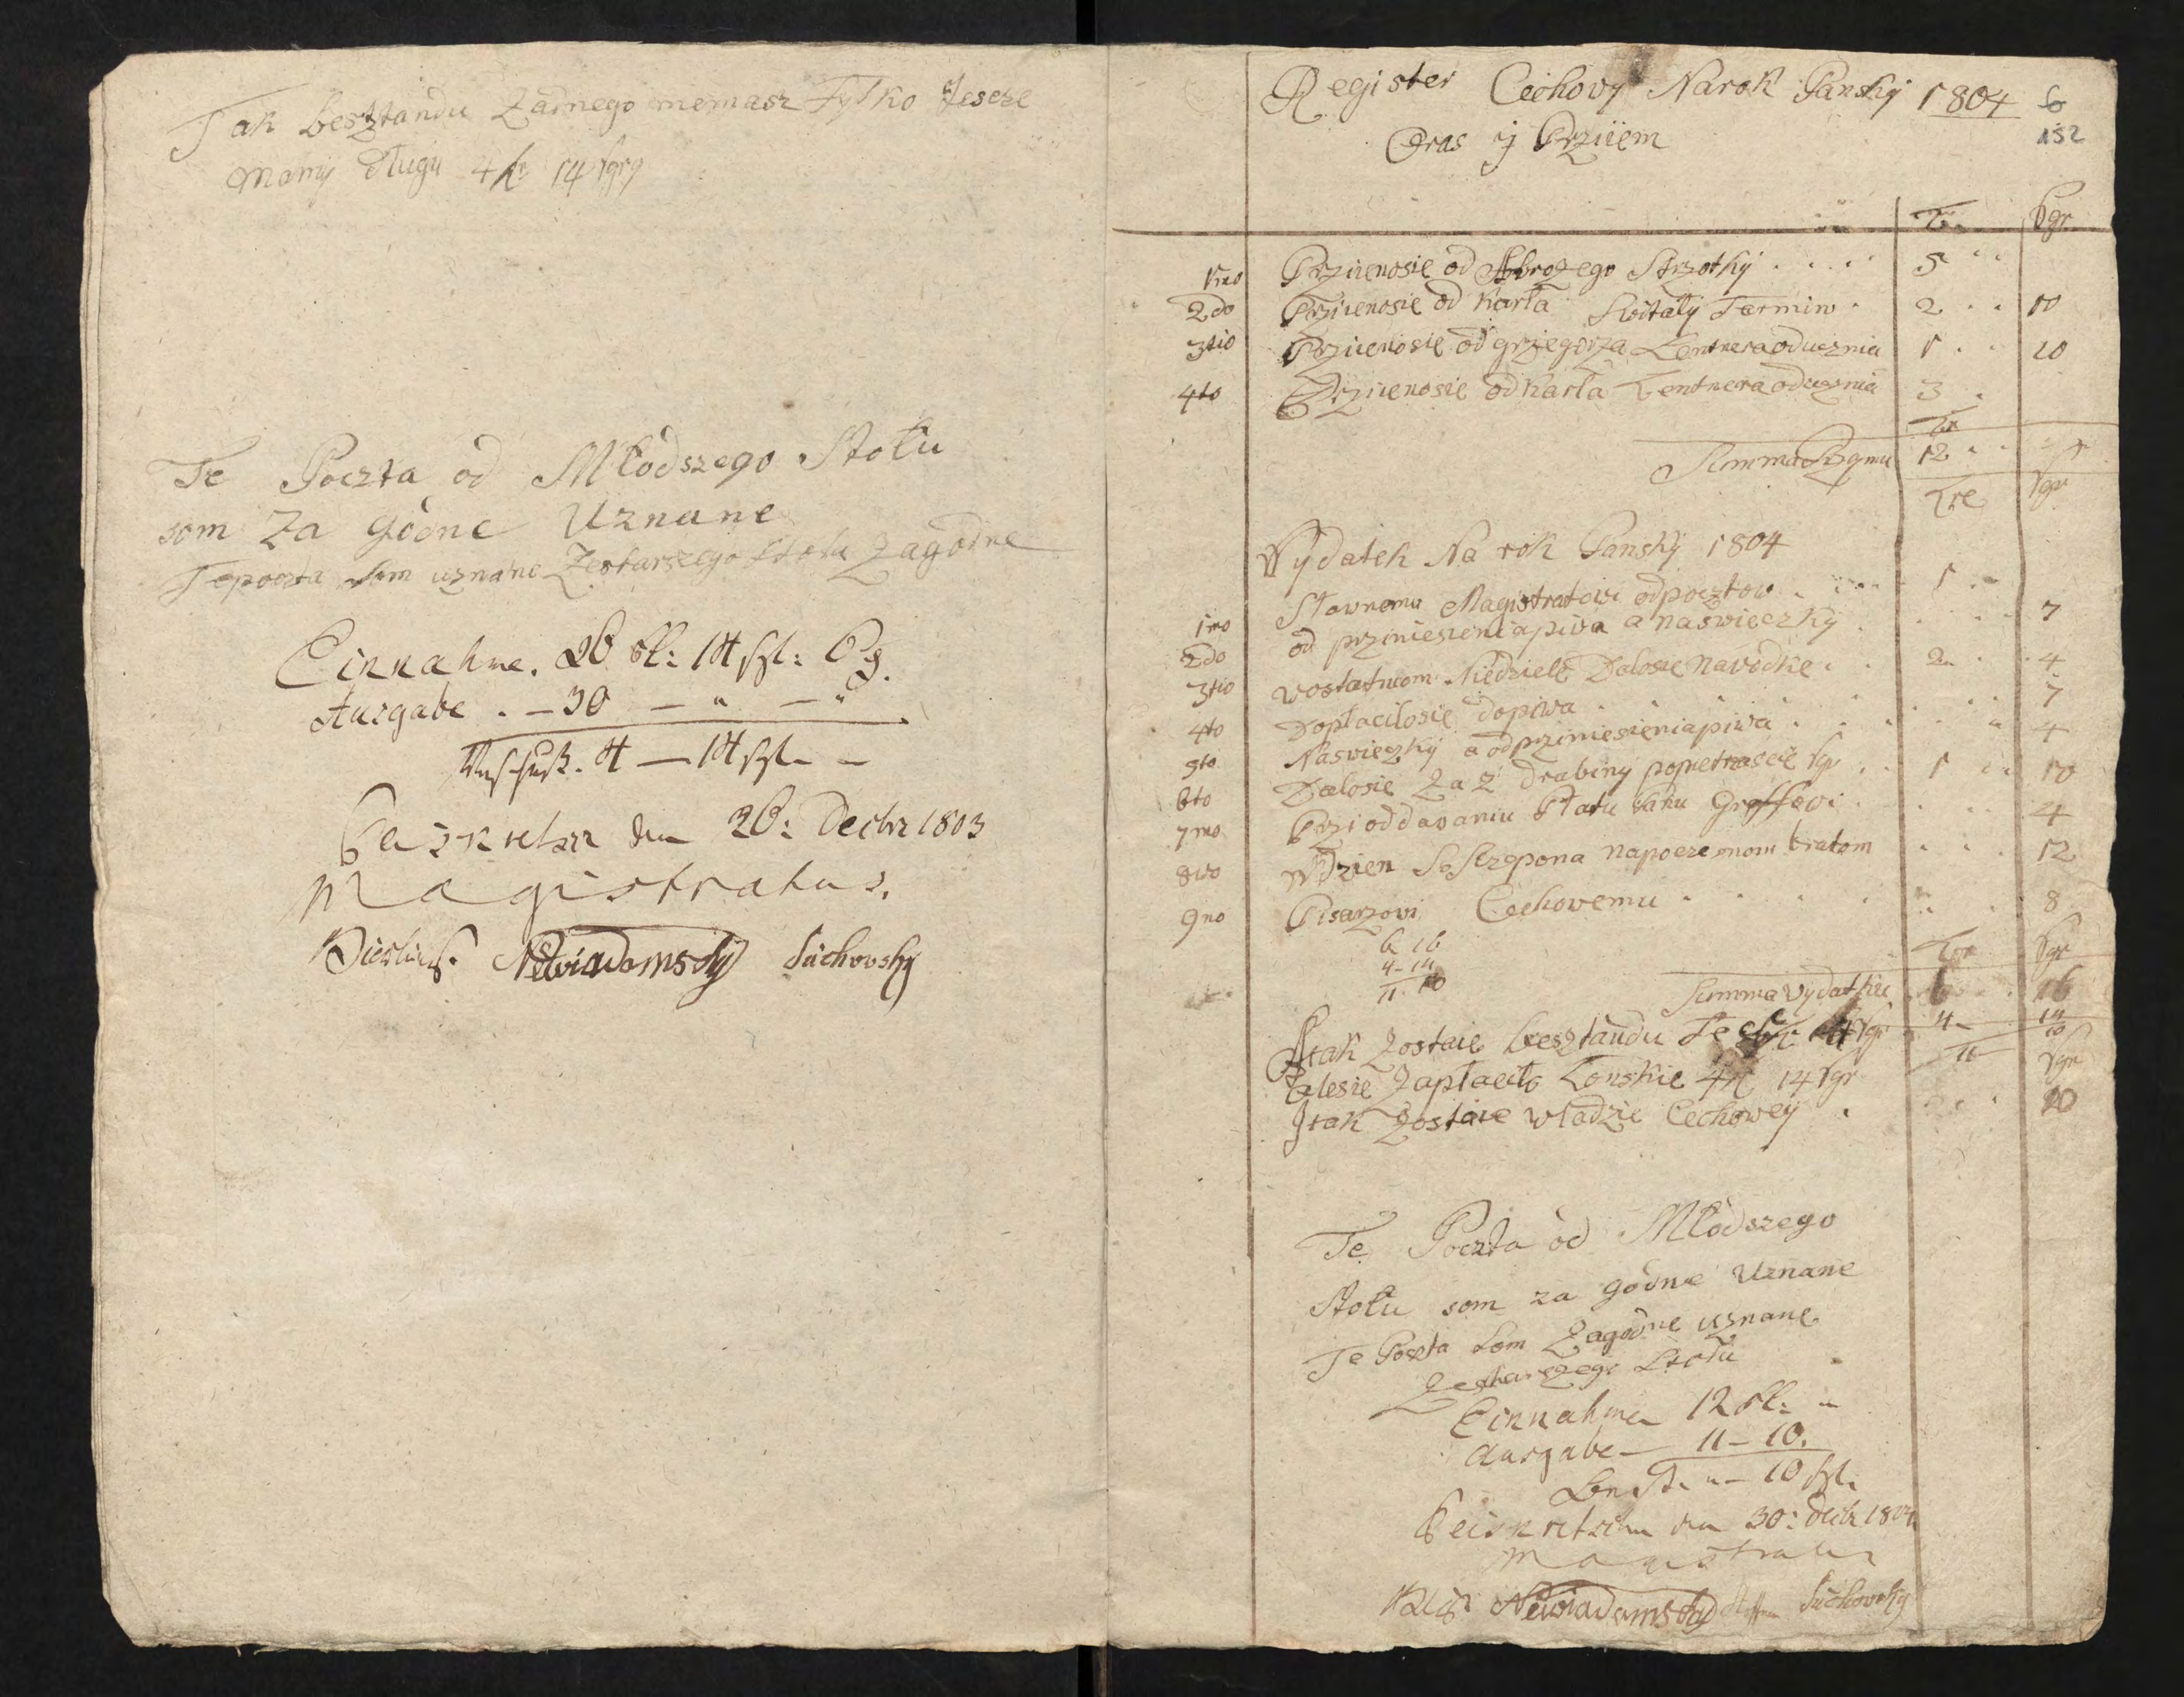 Tak besztandu Zadnego niemasz Tylko Jescze
mamy dlugu 4 14 sgrg
Te Poczta od Młodszego Stołu
som Za Godne Uznane
Tepoczta som uznane Zestarszego Stołu Zagodne
Einnahme. 26 fl: 14 sgl: 6 d.
Ausgabe . — 30 — " — "
Vorschuß. 4 — 14 sgl. —
den 28: Decbr 1803
Magistratus.
Niewiadomsky Suchovsky
Register Cechovy Narok Pansky 1804
152
Oras y Prziiem
Sgr
1mo Prziienosie od Abrozego Strzotky . . . . 5 " "
2do Prziienosie od Karla Switaly Termin . 2 . . 10
3tio Prziienosie od grzegorza Lentnera oducznia 1 . . 10
4to Prziienosie od Karla Lentnera oducznia 3 .
Summa 12 . .
Tre Sgr
Vydatek Na rok Pansky 1804
1mo Slawnemu Magistratowi odpocztow . . . . 1 . .
2do od przniesienia piwa a naswieczky . . . . 7
3tio wostatniom Niedziele Dalosie nawodke . . 2 . . 4
4to Doplacilosie dopiwa . . . . . . . 7
5to Naswieczky a odprziniesieniapiwa . . . . . 4
6to Dalosie Za 2 drabiny popietnascie sgr . . 1 . . 10
7mo Przi oddawaniu Platu Panu Groffowi . . . . 4
8vo W Dzien S Sczepona napoczesnom bratom . . . 12
9no Pisarzowi Cechowemu . . . . . . . 8
6 16
4 – 14
11 10
Sgr
Summa Vydatku 6 . . 16
Atak Zostaie besztandu 4 – 14
11 10
Alesie Zaplacilo Lonskie 4 14 Sgr Sgr
Itak Zostaie wladzie Cechowey . . . . 20
Te Poczta od Młodszego
Stołu som za godne Uznane
Te Poczta som Zagodne uznane
Zestarszego Stołu
Einnahme 12 fl: "
Ausgabe — 11 – 10.
Best. " – 10 sgl.
Peiskretscham den 30: Decbr 1804
Magistratus
Niewiadomsky Suchovsky